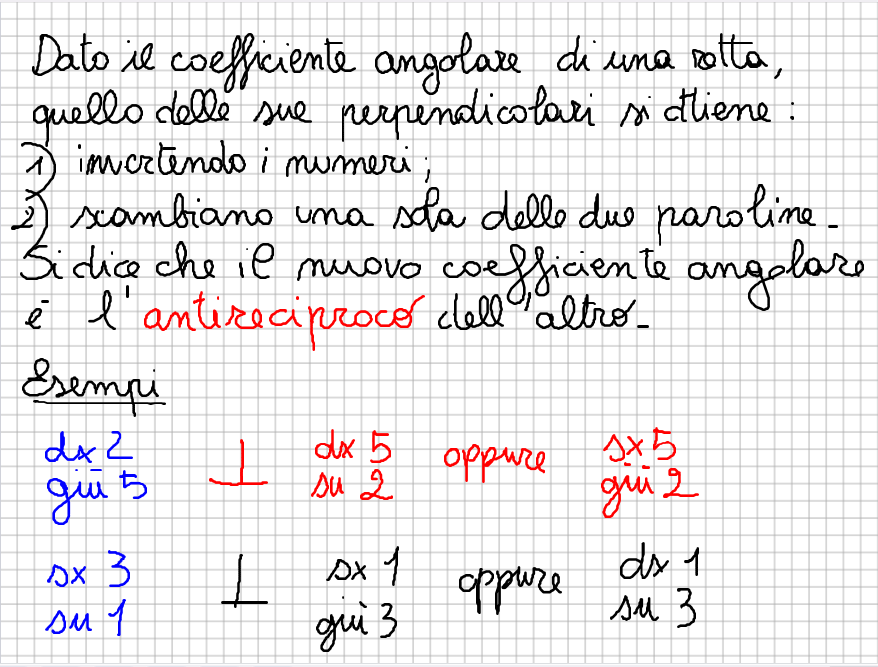 Dato il coefficiente angolare di una retta,
quello delle sue perpendicolari si ottiene:
1) invertendo i numeri;
2) scambiano una sola delle due paroline.
Si dice che il nuovo coefficiente angolare
è l'antireciproco dell'altro.
Esempi
dx 2 ⊥ dx 5 oppure sx 5
giù 5 su 2 giù 2
sx 3 ⊥ sx 1 oppure dx 1
su 1 giù 3 su 3